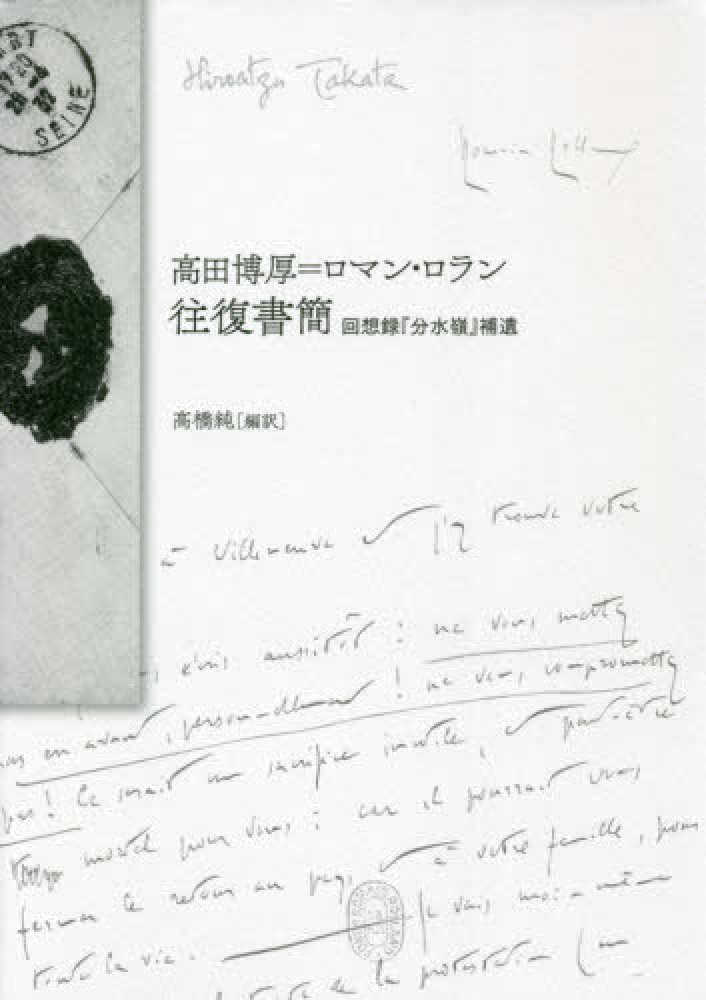 SEINE
Hiroatzu Takata
Romain Rolland
高田博厚=ロマン・ロラン
往復書簡 回想録『分水嶺』補遺
高橋純[編訳]
à Villeneuve et j'y trouve votre
écris aussitôt : ne vous mettez
pas en avant, personnellement ! ne vous compromettez
pas ! Ce serait un sacrifice inutile, et peut-être
mortel pour vous : car il pourrait vous
fermer le retour au pays, et à votre famille, pour
toute la vie. — Je vais moi-même
de la protestation